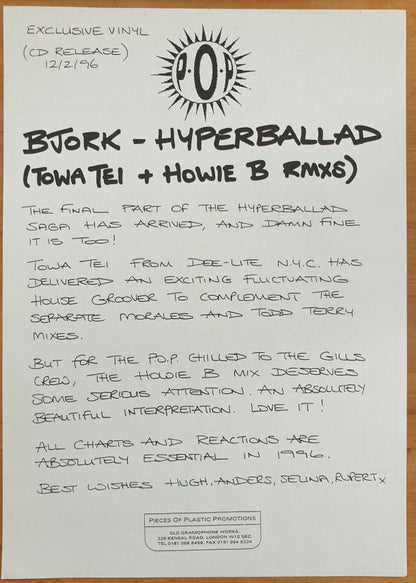 EXCLUSIVE VINYL
(CD RELEASE)
12/2/96
P.O.P
BJORK - HYPERBALLAD
(TOWA TEI + HOWIE B RMXS)
THE FINAL PART OF THE HYPERBALLAD
SAGA HAS ARRIVED, AND DAMN FINE
IT IS TOO!
TOWA TEI FROM DEE-LITE N.Y.C. HAS
DELIVERED AN EXCITING FLUCTUATING
HOUSE GROOVER TO COMPLEMENT THE
SEPARATE MORALES AND TODD TERRY
MIXES.
BUT FOR THE P.O.P. CHILLED TO THE GILLS
CREW, THE HOWIE B MIX DESERVES
SOME SERIOUS ATTENTION. AN ABSOLUTELY
BEAUTIFUL INTERPRETATION. LOVE IT!
ALL CHARTS AND REACTIONS ARE
ABSOLUTELY ESSENTIAL IN 1996.
BEST WISHES HUGH, ANDERS, SELINA, RUPERT x
PIECES OF PLASTIC PROMOTIONS
OLD GRAMOPHONE WORKS,
326 KENSAL ROAD, LONDON W10 5BZ.
TEL 0181 968 8459. FAX 0181 964 9334